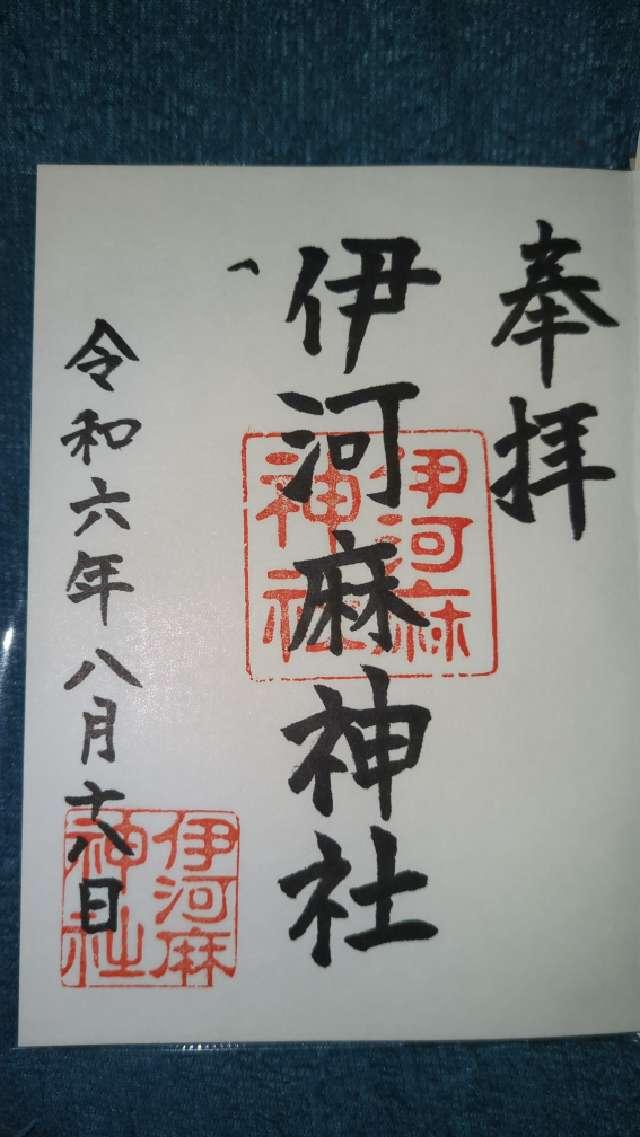 奉拝
伊河麻神社
伊河麻
神社
令和六年八月十八日
伊河麻
神社